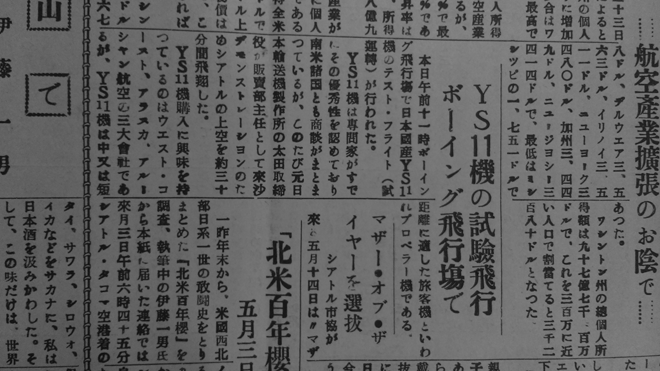 ……航空産業擴張のお陰で……
八ドル、デルウエア三、五
六三ドル、イリノイ三、五
一一ドル、ニューヨーク三
四八〇ドル、加州三、四四
九ドル、ニュージョシー三
四一四ドルで、最低はミシ
シツピの一、七五一ドルで
あつた。
ワシントン州の總個人所
得額は九十七億七千一百万
ドルで、これを三百万に近
い人口で割當てると三千二
百八十ドルとなつた。
YS11機の試驗飛行
ボーイング飛行場で
本日午前十一時ボーイン
グ飛行場で日本國産YS11
機のテスト・フライト（試
運轉）が行われた。
YS11機は専問家がすで
にその優秀性を認めており
南米諸國とも商談がまとま
つているが、このたび元日
本輸送機製作所の太田取締
役が販賣部主任として來沙
デモンストレーションのた
めシアトルの上空を約三十
分間飛翔した。
YS11機購入に興味を持
つているのはウエスト・コ
ースト、アラスカ、アルー
シャン航空の三大會社であ
るが、YS11機は中又は短
距離に適した旅客機といわ
れプロペラー機である。
マザー・オブ・ザ
イヤーを選抜
シアトル市協が
來る五月十四日は"マザ
「北米百年櫻
五月三日
一昨年末から、米國西北
部日系一世の敢闘史をとり
まとめた『北米百年櫻』を
調査、執筆中の伊藤一男氏
から本紙に届いた連絡では
來月三日午前六時四十五分
シアトル・タコマ空港着の
山
て
伊藤一男
タイ、サワラ、シロウオ、
イカなどをサカナに、私は
日本酒を汲みかわした。そ
して、この味だけは、世界